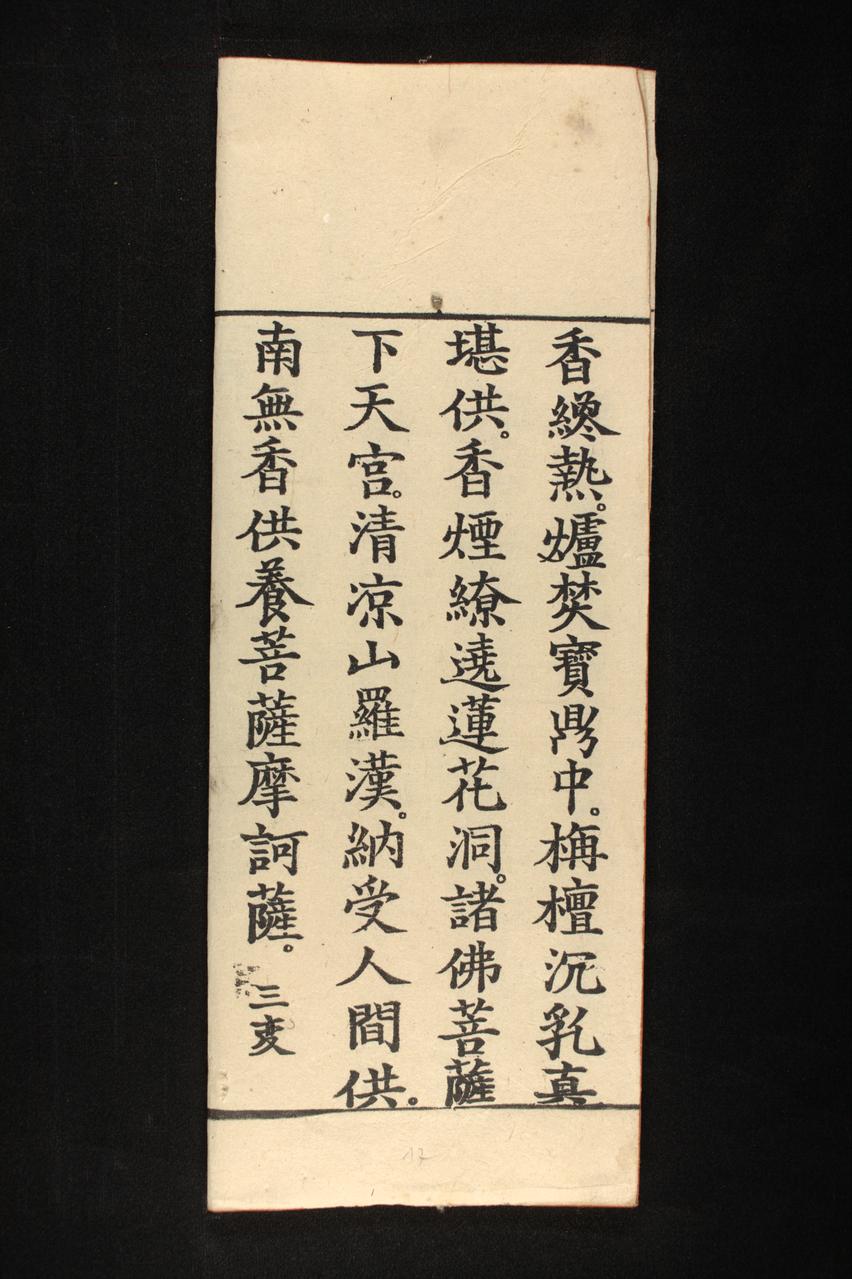 香纔熱。爐焚寶鼎中。栴檀沉乳真
堪供。香煙繚遶蓮花洞。諸佛菩薩
下天宮。清凉山羅漢。納受人間供。
南無香供養菩薩摩訶薩。三变